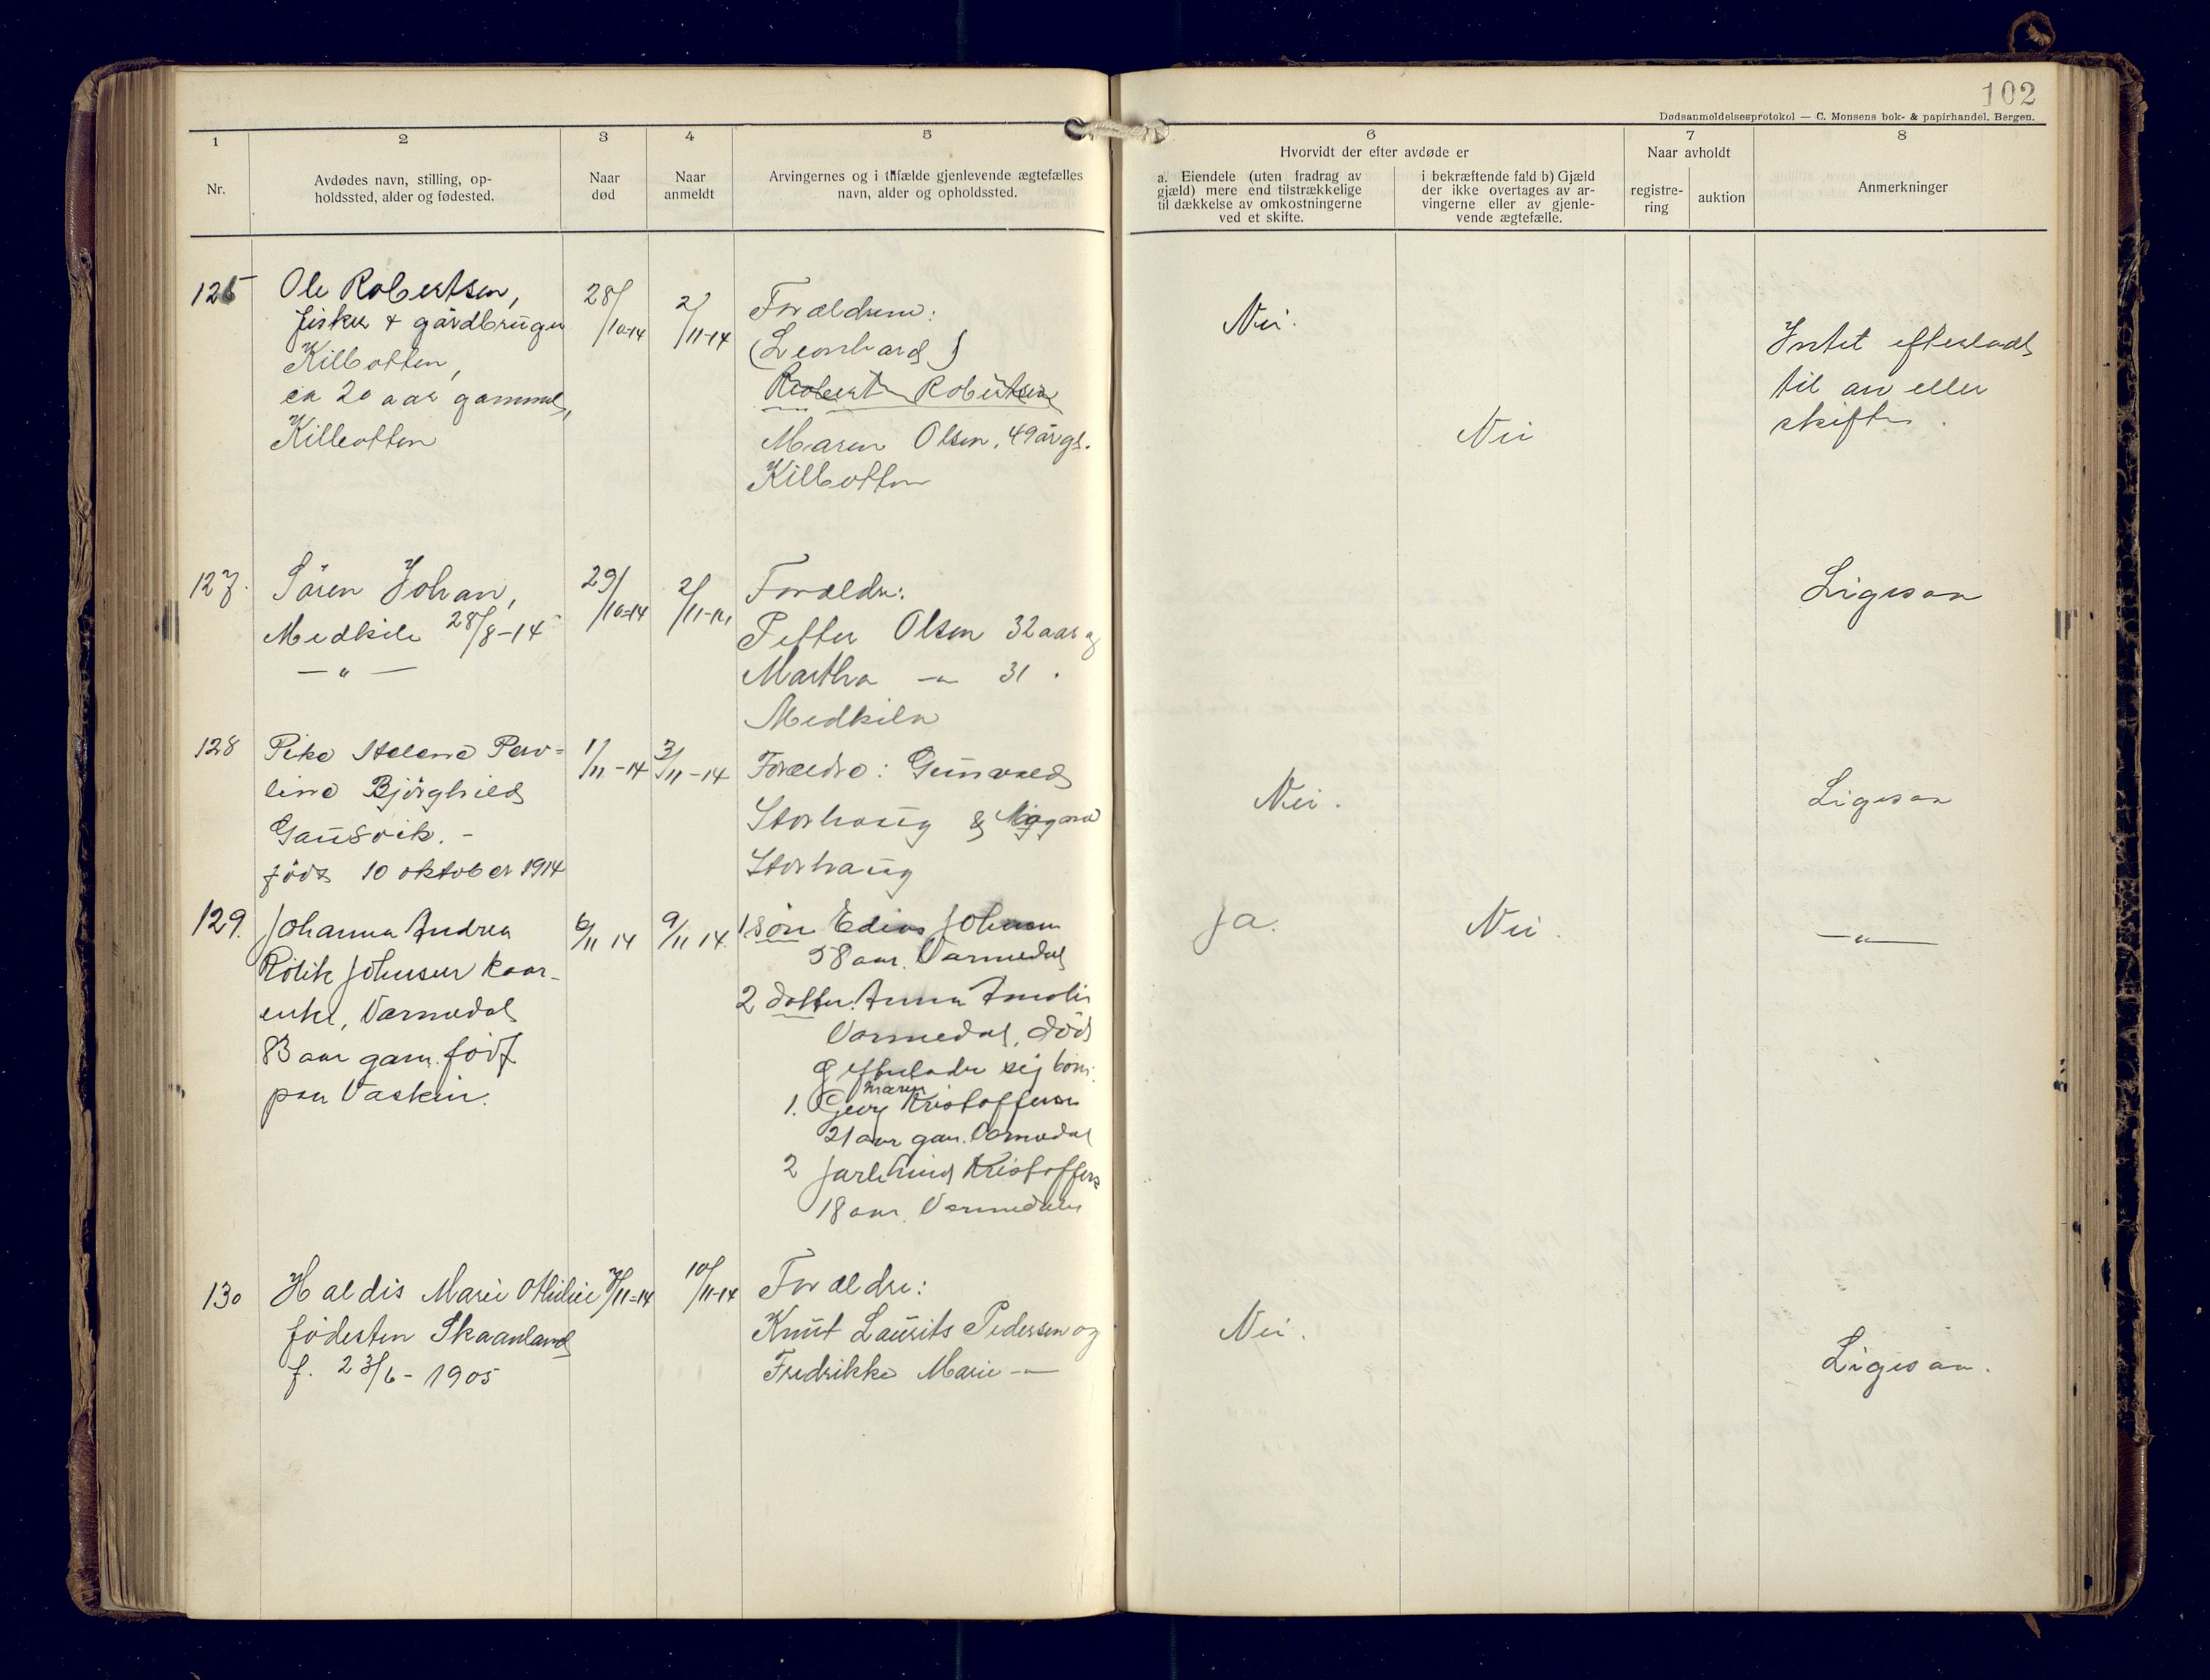 102
Dødsanmeldelsesprotokol — C. Monsens bok- & papirhandel, Bergen.
1
Nr.
2
Avdødes navn, stilling, op-
holdssted, alder og fødested.
3
Naar
død
4
Naar
anmeldt
5
Arvingernes og i tilfælde gjenlevende ægtefælles
navn, alder og opholdssted.
6
Hvorvidt der efter avdøde er
a. Eiendele (uten fradrag av
gjæld) mere end tilstrækkelige
til dækkelse av omkostningerne
ved et skifte.
i bekræftende fald b) Gjæld
der ikke overtages av ar-
vingerne eller av gjenle-
vende ægtefælle.
7
Naar avholdt
registre-
ring
auktion
8
Anmerkninger
126
Ole Robertsen,
fisker & gårdbruger
Kilbotten,
ca 20 aar gammel,
Kilbotten
28/10-14
2/11-14
Forældrene:
(Leonhard)
Robert Robertsen
Maren Olsen, 49 årg.
Kilbotten
Nei.
Nei
Intet efterladt
til arv eller
skifte.
127.
Sören Johan,
Medkile 28/8-14
— " —
29/10-14
2/11-14
Forældre:
Petter Olsen 32 aar og
Martha — " — 31.
Medkila
Ligesaa
128
Pike Helene Pau-
line Björghild
Gausvik. -
födt 10 oktober 1914
1/11-14
3/11-14
Forældre: Gunvald
Storhaug & Magna
Storhaug
Nei.
Ligesaa
129.
Johanna Andrea
Rölik Johnsen kaar-
enke, Varmedal
83 aar gam. född
paa Vaskin.
6/11 14
9/11 14
1 sön Edias Johnsen
58 aar. Varmedal
2 datter. Anna Amalie
Varmedal, död
og efterladr sig börn:
1. Georg Maren Kristoffersen
21 aar gam. Varmedal
2 Jarl Kristoffers
18 aar. Varmedalen
Ja.
Nei.
— " —
130
Haldis Marie Othilie
födesten Skaanland
f. 23/6-1905
7/11-14
10/11-14
Forældre:
Knut Laurits Pedersen og
Fredrikke Marie — " —
Nei.
Ligesaa.